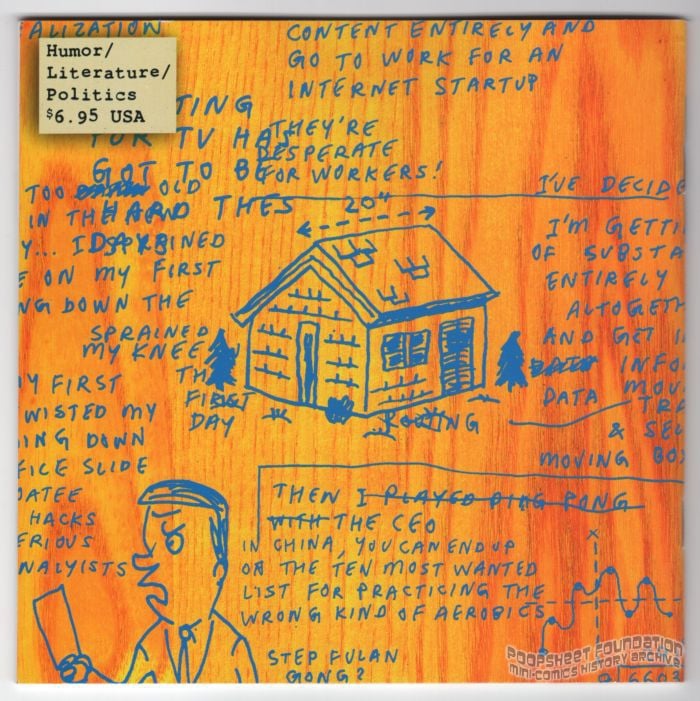 ALIZATION
Humor/
Literature/
Politics
$6.95 USA
CONTENT ENTIRELY AND
GO TO WORK FOR AN
INTERNET STARTUP
TING
FOR TV HAS
GOT TO BE
HARD
THEY'RE
DESPERATE
FOR WORKERS!
THES
TOO OLD
IN THE
Y... I SPRAINED
E ON MY FIRST
NG DOWN THE
SPRAINED
MY KNEE
TH
FIRST
DAY
20"
ROOTING
I'VE DECIDE
I'M GETTI
OF SUBSTA
ENTIRELY
ALTOGETH
AND GET I
INFO
DATA MOV
TRA
& SEL
MOVING BOX
MY FIRST
WISTED MY
ING DOWN
FICE SLIDE
OATEE
HACKS
ERIOUS
NALYISTS
THEN I PLAYED PING PONG
WITH THE CEO
IN CHINA, YOU CAN END UP
ON THE TEN MOST WANTED
LIST FOR PRACTICING THE
WRONG KIND OF AEROBICS
STEP FULAN
GONG?
X
POOPSHEET FOUNDATION
MINI-COMICS HISTORY ARCHIVE